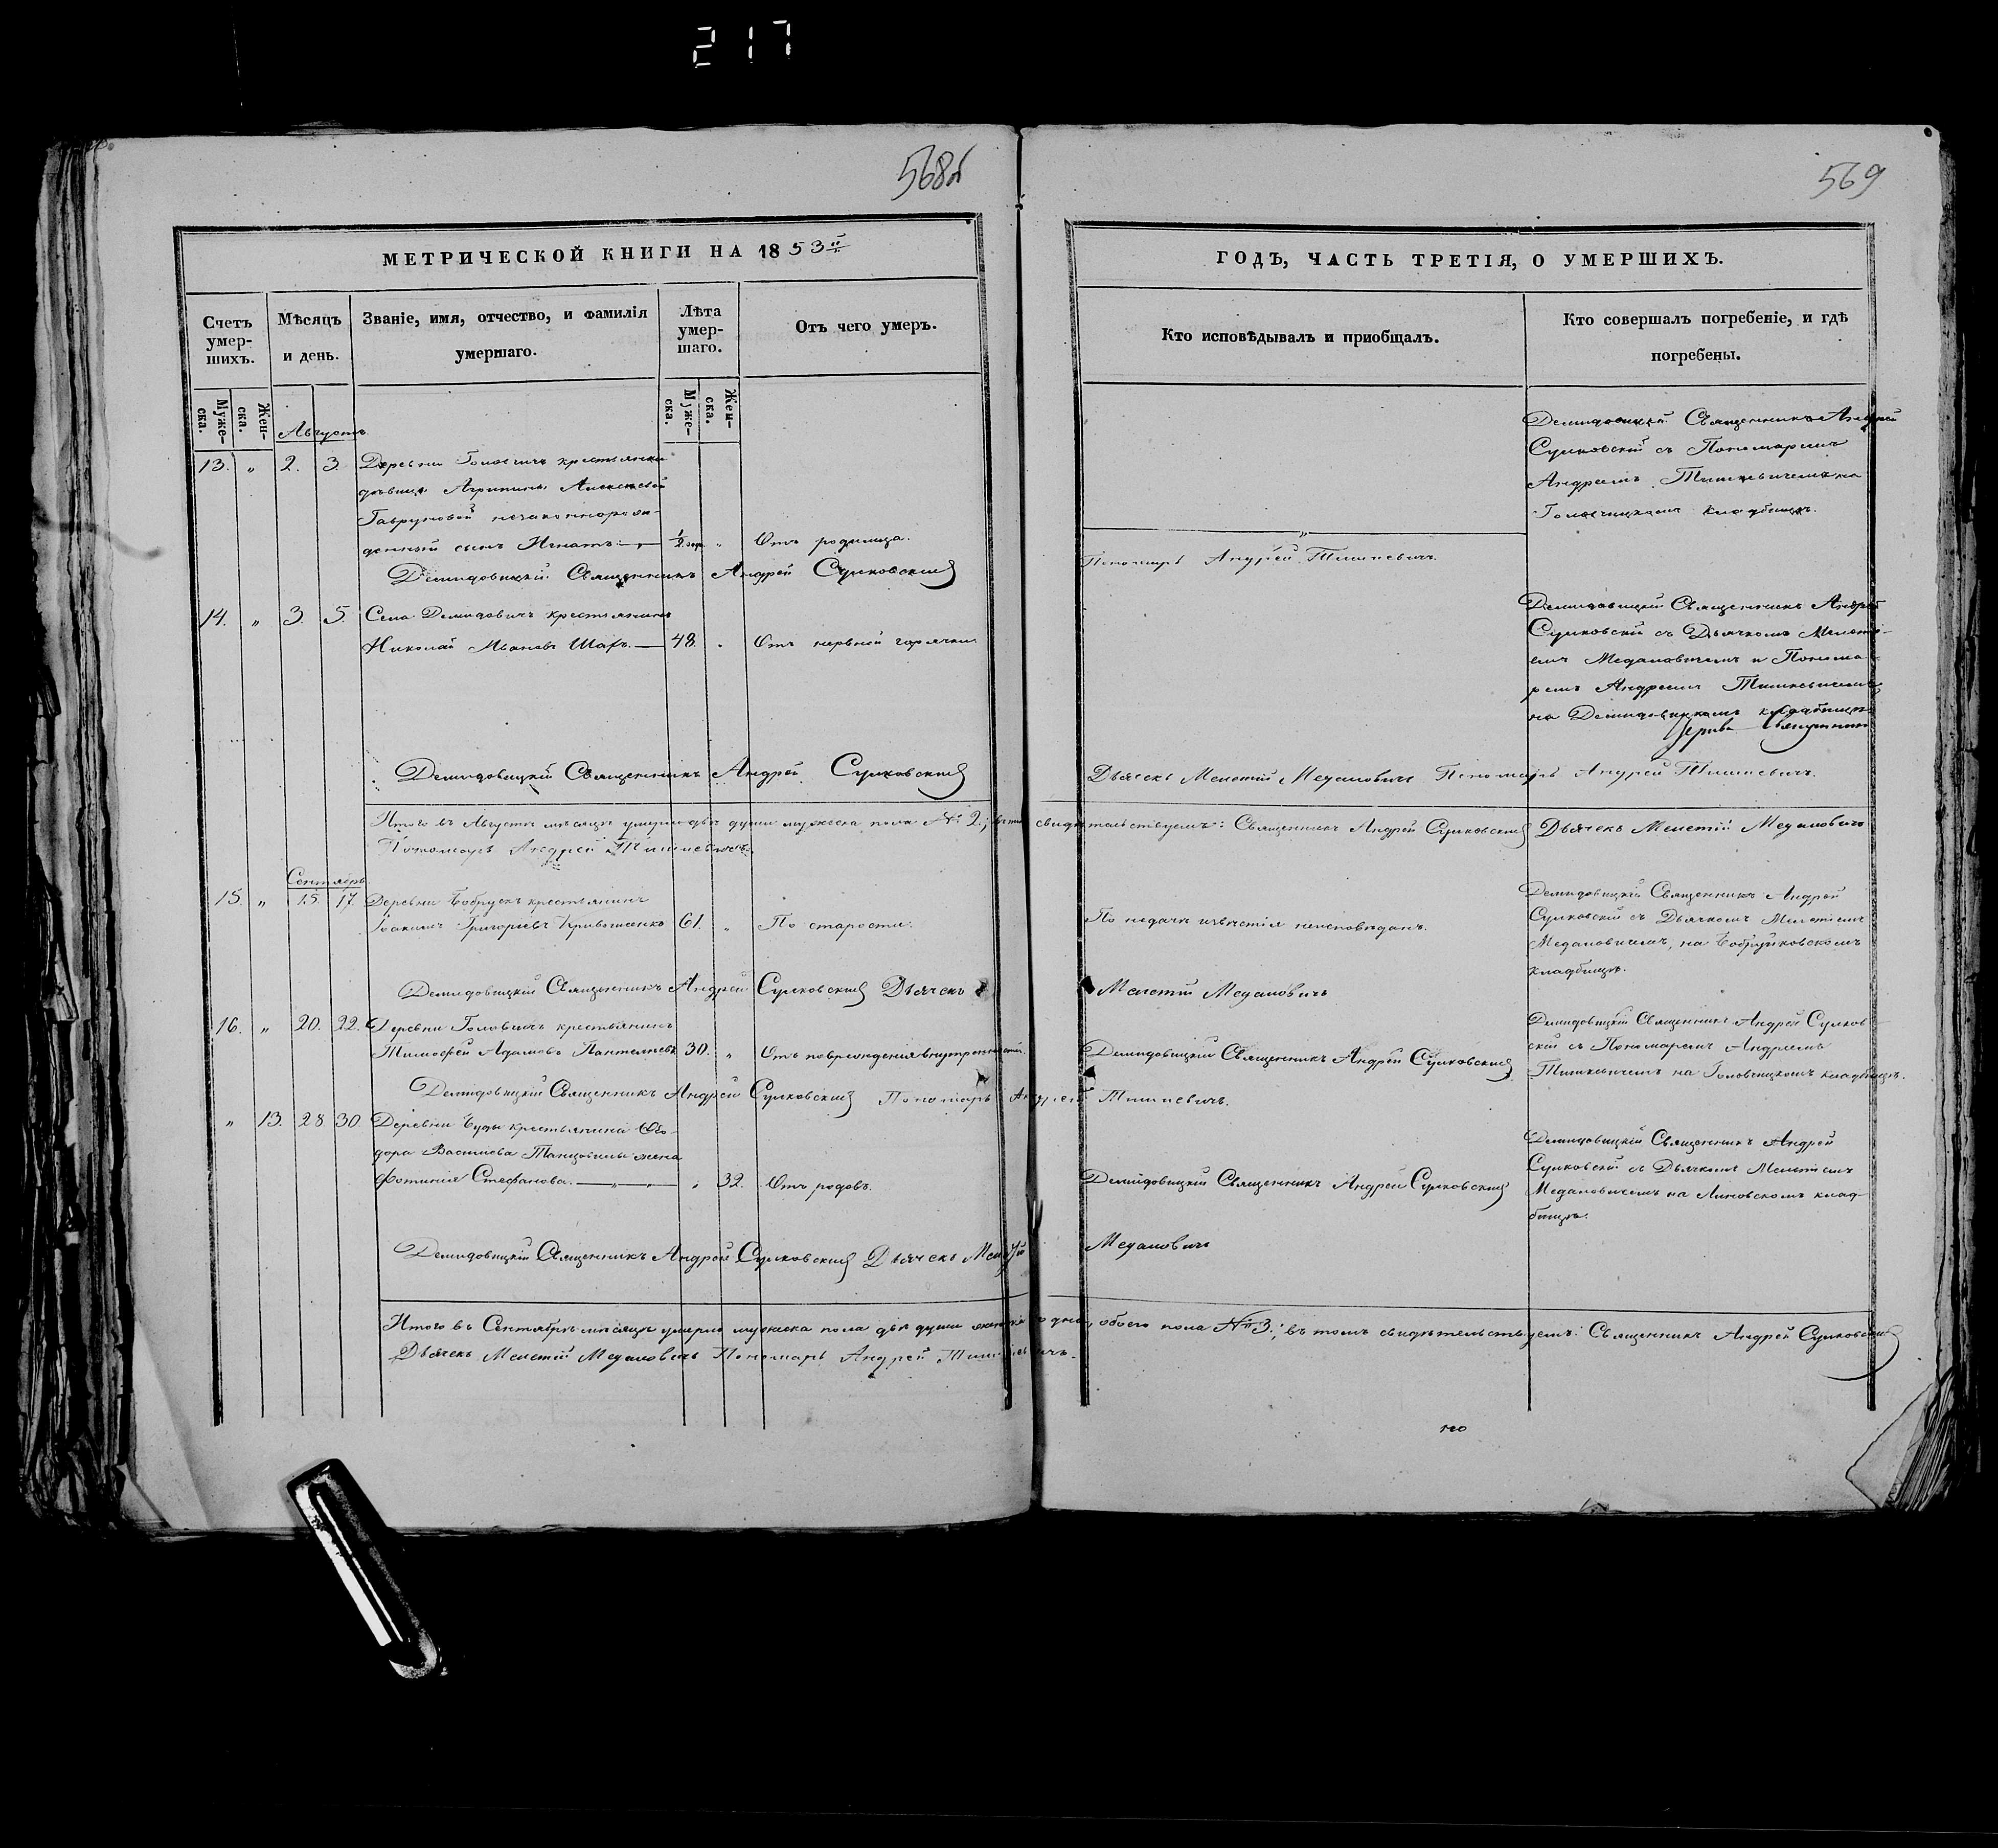 217
568об
569
МЕТРИЧЕСКОЙ КНИГИ НА 1853й
ГОДЪ, ЧАСТЬ ТРЕТІЯ, О УМЕРШИХЪ.
Счетъ умер-шихъ.
Мѣсяцъ и день.
Званіе, имя, отчество, и фамилія умершаго.
Лѣта умер-шаго.
Отъ чего умеръ.
Кто исповѣдывалъ и приобщалъ.
Кто совершалъ погребеніе, и гдѣ погребены.
Муже-ска.
Жен-ска.
Муже-ска.
Жен-ска.
Августъ
13. „ 2. 3. Деревни Головчичъ крестьянки
дѣвицы Агрипины Алексѣевой
незаконнорож-
денный сынъ Игнатъ. — ½ „ Отъ родимца.
„
Демидовицкій Священникъ Андрей
Сулковскій съ Пономаремъ
Андреемъ Тишкевичемъ на
Головчицкомъ кладбищѣ.
Демидовицкій Священникъ Андрей Сулковскій
Пономарь Андрей Тишкевичъ.
14. „ 3. 5. Села Демидовичъ крестьянинъ
Николай Ивановъ Шаръ. — 48. „ Отъ нервной горячки
Демидовицкій Священникъ Андрей
Сулковскій съ Дьячкомъ Мелеті-
емъ Медановичемъ и Понома-
ремъ Андреемъ Тишкевичемъ
на Демидовицкомъ кладбищѣ
Демидовицкій Священникъ Андрей Сулковскій Дьячекъ Мелетій Медановичъ Пономарь Андрей Тишкевичъ.
Итого въ Августѣ мѣсяцѣ умерло двѣ души мужеска пола № 2; свидѣтельствуемъ: Священникъ Андрей Сулковскій Дьячекъ Мелетій Медановичъ
Пономарь Андрей Тишкевичъ.
Сентябрь
15. „ 15. 17. Деревни Бобрукъ крестьянинъ
Іоакимъ Григорьевъ 61. „ По старости.
По недачи извѣстія неисповѣданъ.
Демидовицкій Священникъ Андрей
Сулковскій съ Дьячкомъ Мелетіемъ
Медановичемъ, на
кладбищѣ.
Демидовицкій Священникъ Андрей Сулковскій Дьячекъ Мелетій Медановичъ
16. „ 20. 22. Деревни Головчичъ крестьянинъ
Тимофей Адамовъ 30. „ Отъ поврежденія внутренностей.
Демидовицкій Священникъ Андрей Сулковскій
Демидовицкій Священникъ Андрей Сулков-
скій съ Пономаремъ Андреемъ
Тишкевичемъ на Головчицкомъ кладбищѣ.
Демидовицкій Священникъ Андрей Сулковскій Пономарь Андрей Тишкевичъ.
„ 13. 28 30 Деревни Буды крестьянина Өео-
дора Васильева жена
Фотинія Стефанова. — „ — „ 32. Отъ родовъ.
Демидовицкій Священникъ Андрей Сулковскій
Демидовицкій Священникъ Андрей
Сулковскій съ Дьячкомъ Мелетіемъ
Медановичемъ на Линовскомъ клад-
бищѣ.
Демидовицкій Священникъ Андрей Сулковскій Дьячекъ Мелетій Медановичъ
Итого въ Сентябрѣ мѣсяцѣ умерло мужеска пола двѣ души женска одна, обоего пола № 3; въ томъ свидѣтельствуемъ: Священникъ Андрей Сулковскій
Дьячекъ Мелетій Медановичъ Пономарь Андрей Тишкевичъ.